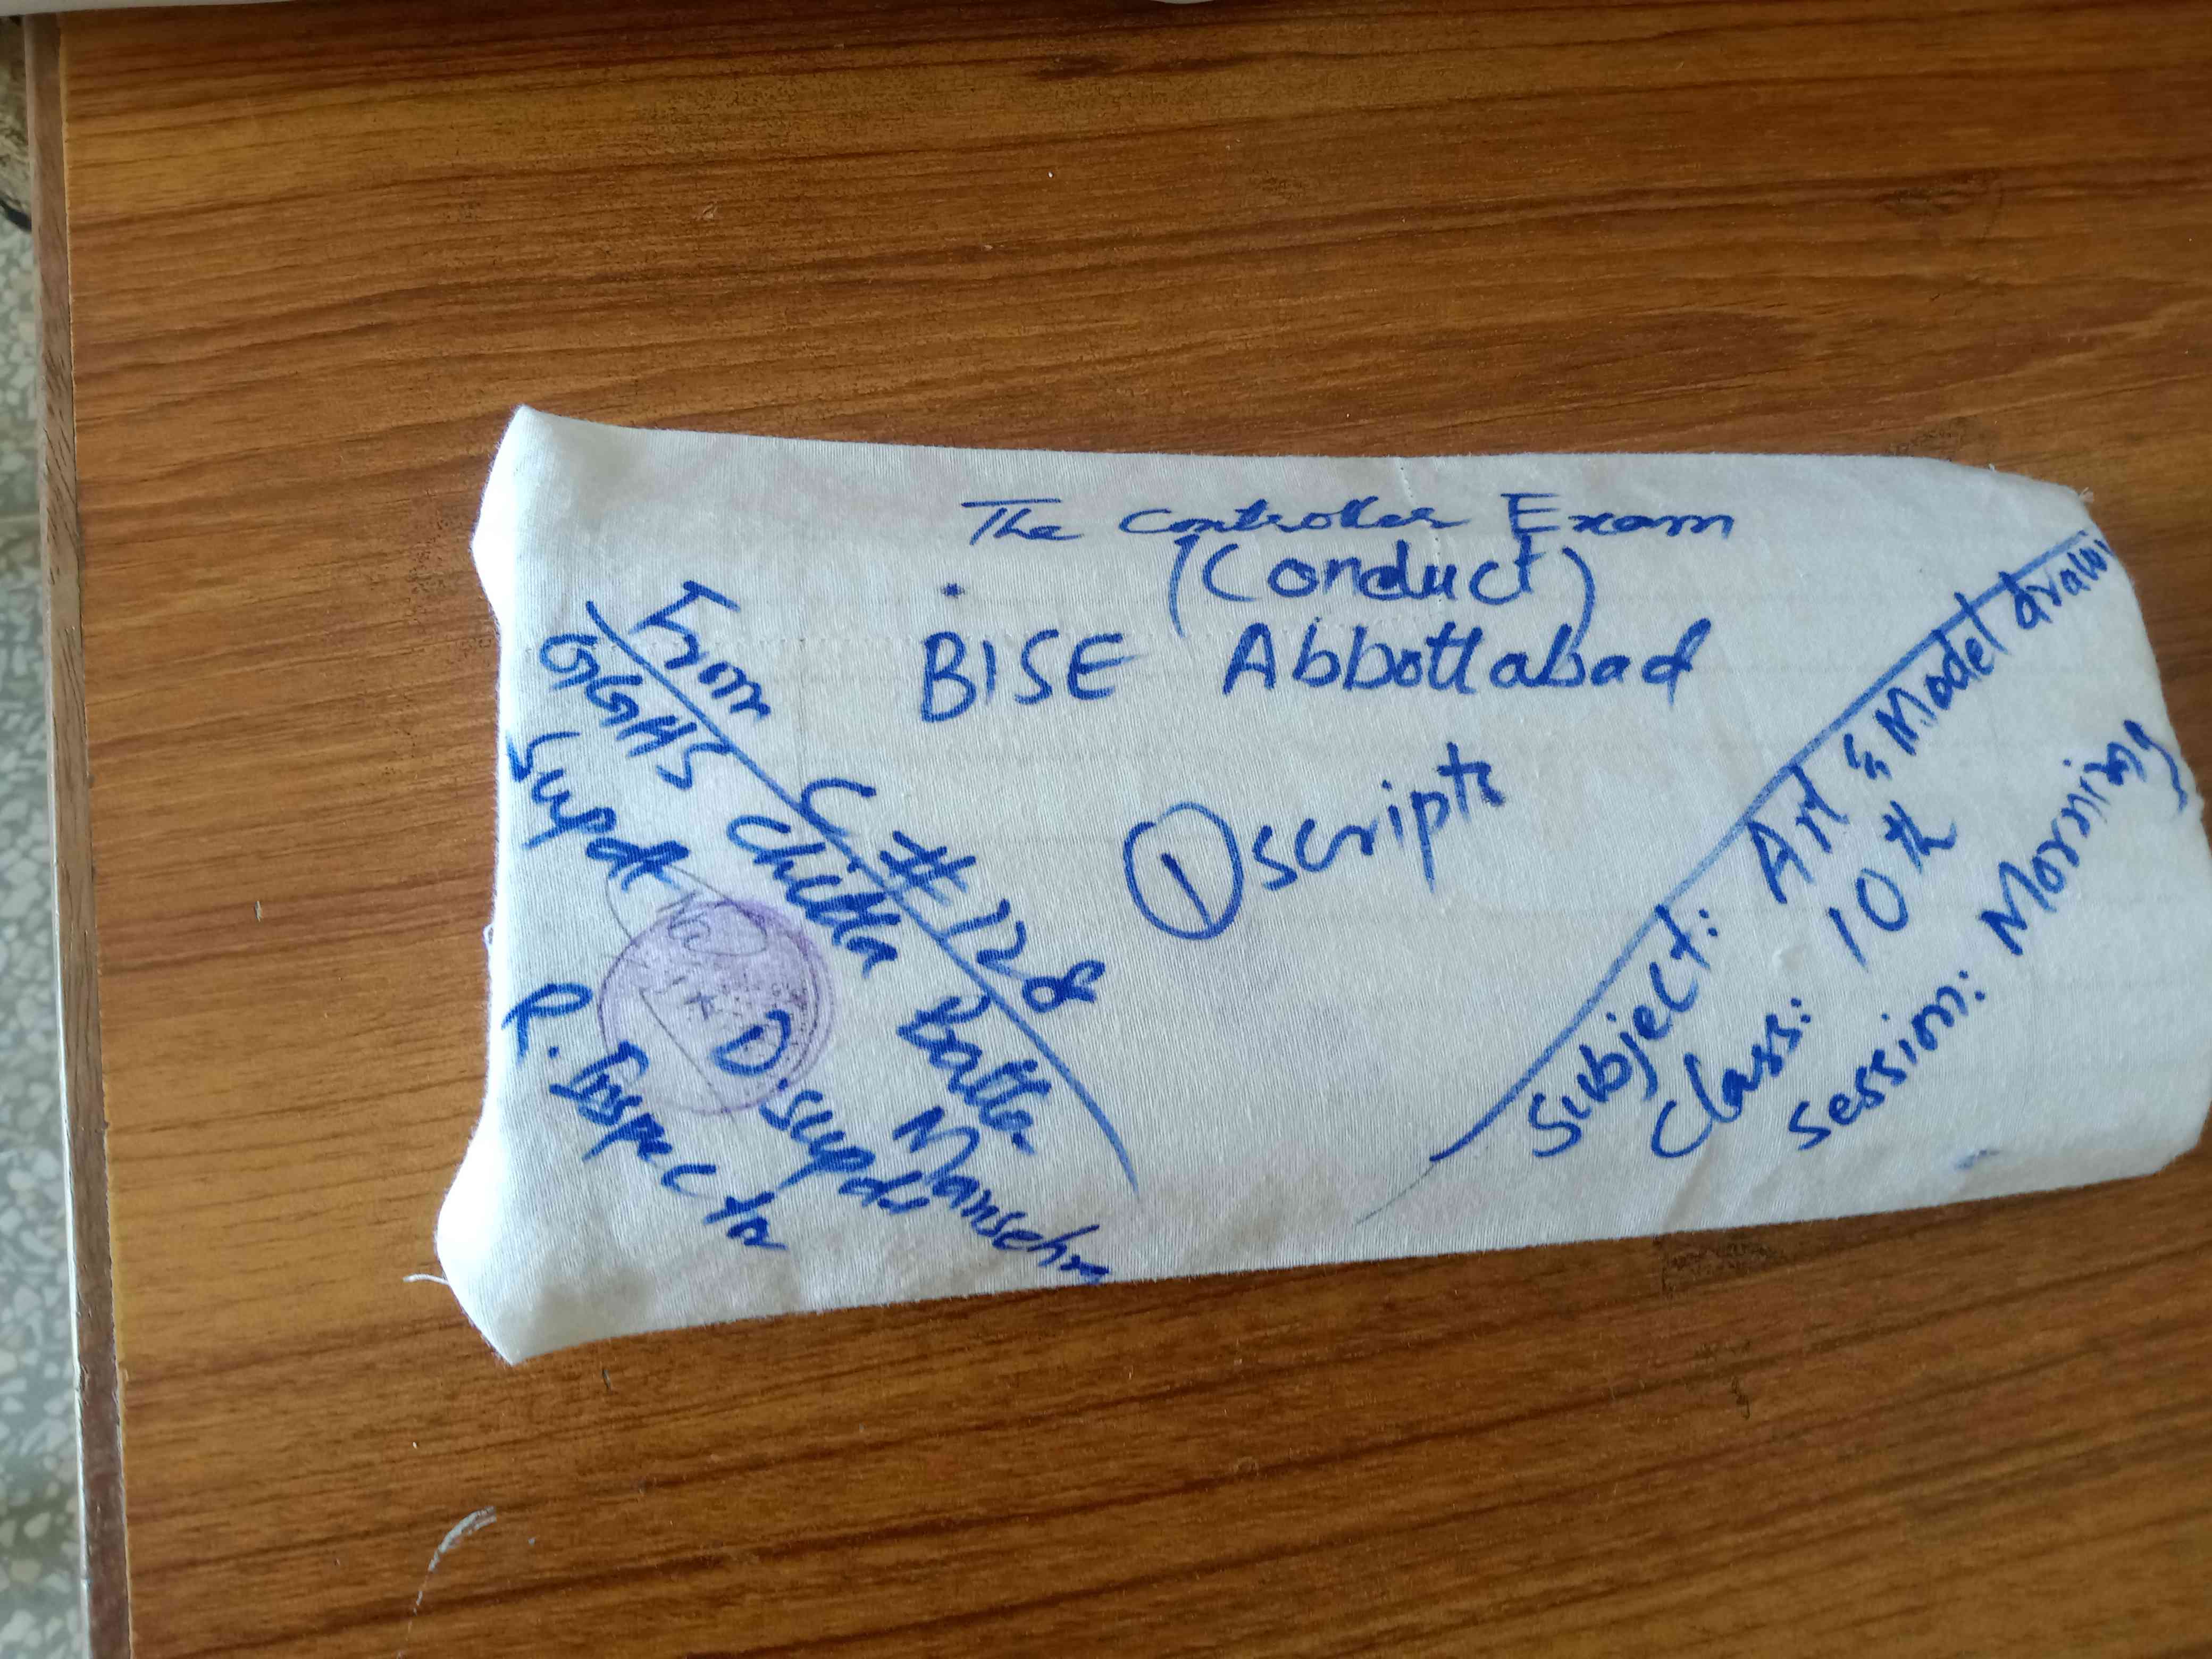 The Controller Exam
(Conduct)
BISE Abbottabad
1 scripts
From C # 128
GGHS Chitta Batta Mansehra
Supdt
D. Supdt
R. Inspector
Subject: Art & Model draw
Class: 10th
Session: Morning